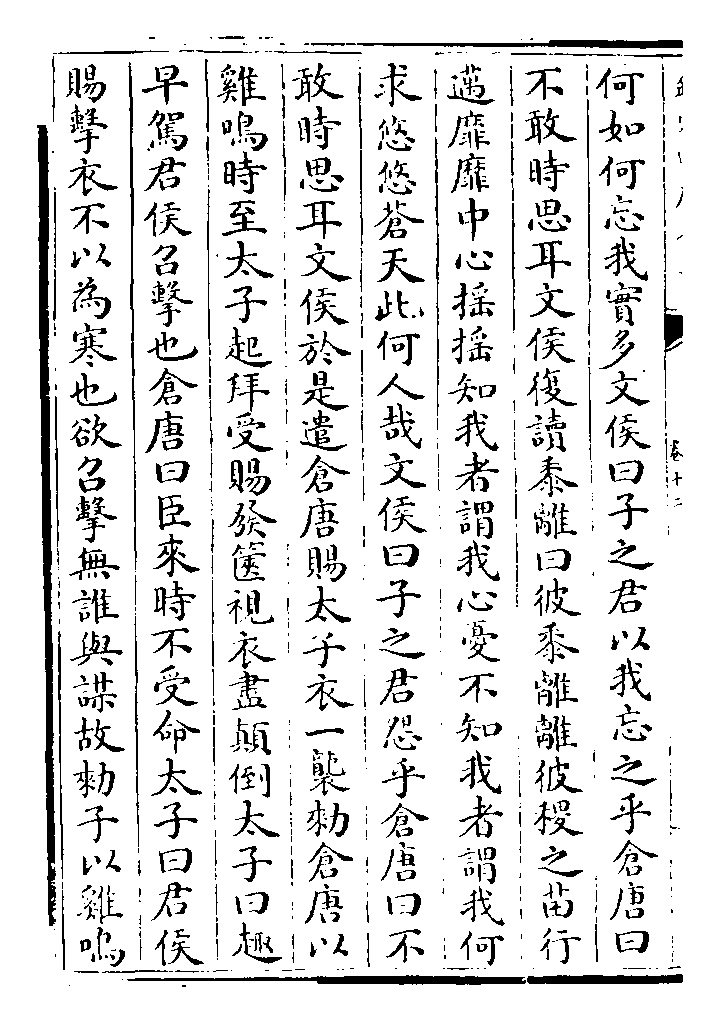 何如何忘我實多文侯曰子之君以我忘之乎倉唐曰
不敢時思耳文侯復讀黍離曰彼黍離離彼稷之苗行
邁靡靡中心揺揺知我者謂我心憂不知我者謂我何
求悠悠蒼天此何人哉文侯曰子之君怨乎倉唐曰不
敢時思耳文侯於是遣倉唐賜太子衣一襲勑倉唐以
雞鳴時至太子起拜受賜發篋視衣盡顛倒太子曰趣
早駕君侯召擊也倉唐曰臣來時不受命太子曰君侯
賜擊衣不以為寒也欲召擊無誰與謀故勑子以雞鳴
卷十二